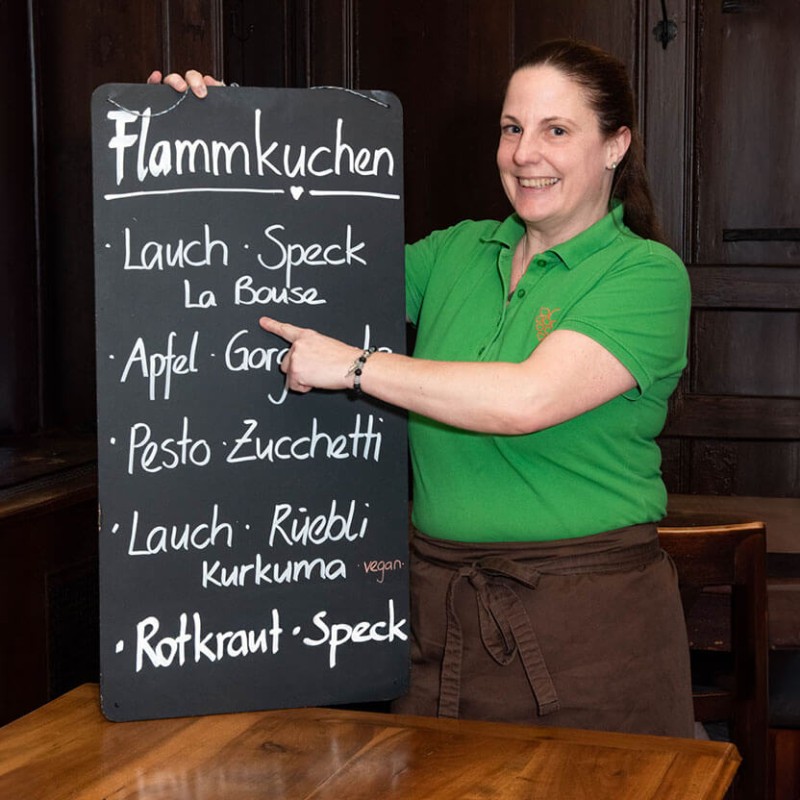 Flammkuchen
· Lauch · Speck
La Bouse
· Apfel ·
· Pesto · Zucchetti
· Lauch · Rüebli
Kurkuma · vegan ·
· Rotkraut · Speck